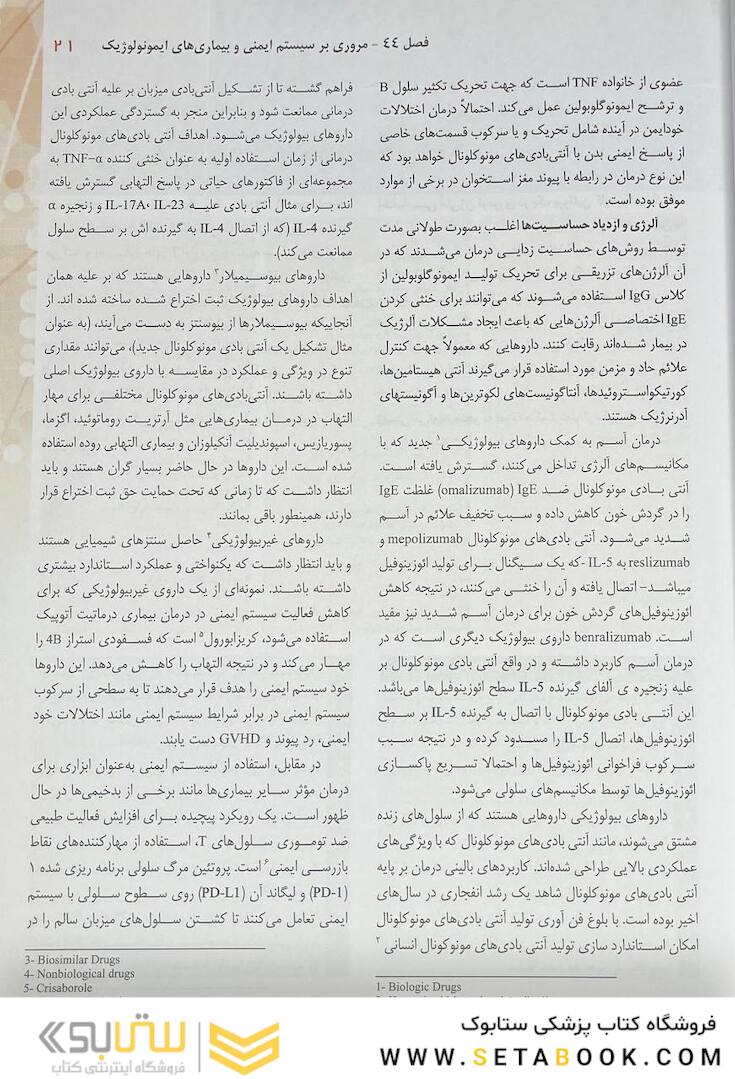 فصل ٤٤ - مروری بر سیستم ایمنی و بیماری‌های ایمونولوژیک ۲۱
عضوی از خانواده TNF است که جهت تحریک تکثیر سلول B
و ترشح ایمونوگلوبولین عمل می‌کند. احتمالاً درمان اختلالات
خودایمن در آینده شامل تحریک و یا سرکوب قسمت‌های خاصی
از پاسخ ایمنی بدن با آنتی‌بادی‌های مونوکلونال خواهد بود که
این نوع درمان در رابطه با پیوند مغز استخوان در برخی از موارد
موفق بوده است.
آلرژی و ازدیاد حساسیت‌ها اغلب بصورت طولانی مدت
توسط روش‌های حساسیت زدایی درمان می‌شدند که در
آن آلرژن‌های تزریقی برای تحریک تولید ایمونوگلوبولین از
کلاس IgG استفاده می‌شوند که می‌توانند برای خنثی کردن
IgE اختصاصی آلرژن‌هایی که باعث ایجاد مشکلات آلرژیک
در بیمار شده‌اند رقابت کنند. داروهایی که معمولاً جهت کنترل
علائم حاد و مزمن مورد استفاده قرار می‌گیرند آنتی هیستامین‌ها،
کورتیکواستروئیدها، آنتاگونیست‌های لکوترین‌ها و آگونیستهای
آدرنرژیک هستند.
درمان آسم به کمک داروهای بیولوژیکی۱ جدید که با
مکانیسم‌های آلرژی تداخل می‌کنند، گسترش یافته است.
آنتی بادی مونوکلونال ضد IgE (omalizumab) غلظت IgE
را در گردش خون کاهش داده و سبب تخفیف علائم در آسم
شدید می‌شود. آنتی بادی‌های مونوکلونال mepolizumab و
reslizumab به IL-5 -که یک سیگنال برای تولید ائوزینوفیل
میباشد- اتصال یافته و آن را خنثی می‌کنند، در نتیجه کاهش
ائوزینوفیل‌های گردش خون برای درمان آسم شدید نیز مفید
است. benralizumab داروی بیولوژیک دیگری است که در
درمان آسم کاربرد داشته و در واقع آنتی بادی مونوکلونال بر
علیه زنجیره ی آلفای گیرنده IL-5 سطح ائوزینوفیل‌ها می‌باشد.
این آنتی بادی مونوکلونال با اتصال به گیرنده IL-5 بر سطح
ائوزینوفیل‌ها، اتصال IL-5 را مسدود کرده و در نتیجه سبب
سرکوب فراخوانی ائوزینوفیل‌ها و احتمالا تسریع پاکسازی
ائوزینوفیل‌ها توسط مکانیسم‌های سلولی می‌شود.
داروهای بیولوژیکی داروهایی هستند که از سلول‌های زنده
مشتق می‌شوند، مانند آنتی بادی‌های مونوکلونال که با ویژگی‌های
عملکردی بالایی طراحی شده‌اند. کاربردهای بالینی درمان بر پایه
آنتی بادی‌های مونوکلونال شاهد یک رشد انفجاری در سال‌های
اخیر بوده است. با بلوغ فن آوری تولید آنتی بادی‌های مونوکلونال
امکان استاندارد سازی تولید آنتی بادی‌های مونوکونال انسانی ۲
1- Biologic Drugs
فراهم گشته تا از تشکیل آنتی‌بادی میزبان بر علیه آنتی بادی
درمانی ممانعت شود و بنابراین منجر به گستردگی عملکردی این
داروهای بیولوژیک می‌شود. اهداف آنتی بادی‌های مونوکلونال
درمانی از زمان استفاده اولیه به عنوان خنثی کننده TNF-α به
مجموعه‌ای از فاکتورهای حیاتی در پاسخ التهابی گسترش یافته
اند، برای مثال آنتی بادی علیه IL-17A، IL-23 و زنجیره α
گیرنده IL-4 (که از اتصال IL-4 به گیرنده اش بر سطح سلول
ممانعت می‌کند).
داروهای بیوسیمیلار۳ داروهایی هستند که بر علیه همان
اهداف داروهای بیولوژیک ثبت اختراع شده ساخته شده اند. از
آنجاییکه بیوسیمیلارها از بیوسنتز به دست می‌آیند، (به عنوان
مثال تشکیل یک آنتی بادی مونوکلونال جدید)، می‌توانند مقداری
تنوع در ویژگی و عملکرد در مقایسه با داروی بیولوژیک اصلی
داشته باشند. آنتی‌بادی‌های مونوکلونال مختلفی برای مهار
التهاب در درمان بیماری‌هایی مثل آرتریت روماتوئید، اگزما،
پسوریازیس، اسپوندیلیت آنکیلوزان و بیماری التهابی روده استفاده
شده است. این داروها در حال حاضر بسیار گران هستند و باید
انتظار داشت که تا زمانی که تحت حمایت حق ثبت اختراع قرار
دارند، همینطور باقی بمانند.
داروهای غیربیولوژیکی۴ حاصل سنتزهای شیمیایی هستند
و باید انتظار داشت که یکنواختی و عملکرد استاندارد بیشتری
داشته باشند. نمونه‌ای از یک داروی غیربیولوژیکی که برای
کاهش فعالیت سیستم ایمنی در درمان بیماری درماتیت آتوپیک
استفاده می‌شود، کریزابورول۵ است که فسفودی استراز 4B را
مهار می‌کند و در نتیجه التهاب را کاهش می‌دهد. این داروها
خود سیستم ایمنی را هدف قرار می‌دهند تا به سطحی از سرکوب
سیستم ایمنی در برابر شرایط سیستم ایمنی مانند اختلالات خود
ایمنی، رد پیوند و GVHD دست یابند.
در مقابل، استفاده از سیستم ایمنی به‌عنوان ابزاری برای
درمان مؤثر سایر بیماری‌ها مانند برخی از بدخیمی‌ها در حال
ظهور است. یک رویکرد پیچیده برای افزایش فعالیت طبیعی
ضد توموری سلول‌های T، استفاده از مهارکننده‌های نقاط
بازرسی ایمنی۶ است. پروتئین مرگ سلولی برنامه ریزی شده ۱
(PD-1) و لیگاند آن (PD-L1) روی سطوح سلولی با سیستم
ایمنی تعامل می‌کنند تا کشتن سلول‌های میزبان سالم را در
3- Biosimilar Drugs
4- Nonbiological drugs
5- Crisaborole
فروشگاه کتاب پزشکی ستابوک
WWW.SETABOOK.COM
ستابوک
فروشگاه اینترنتی کتاب